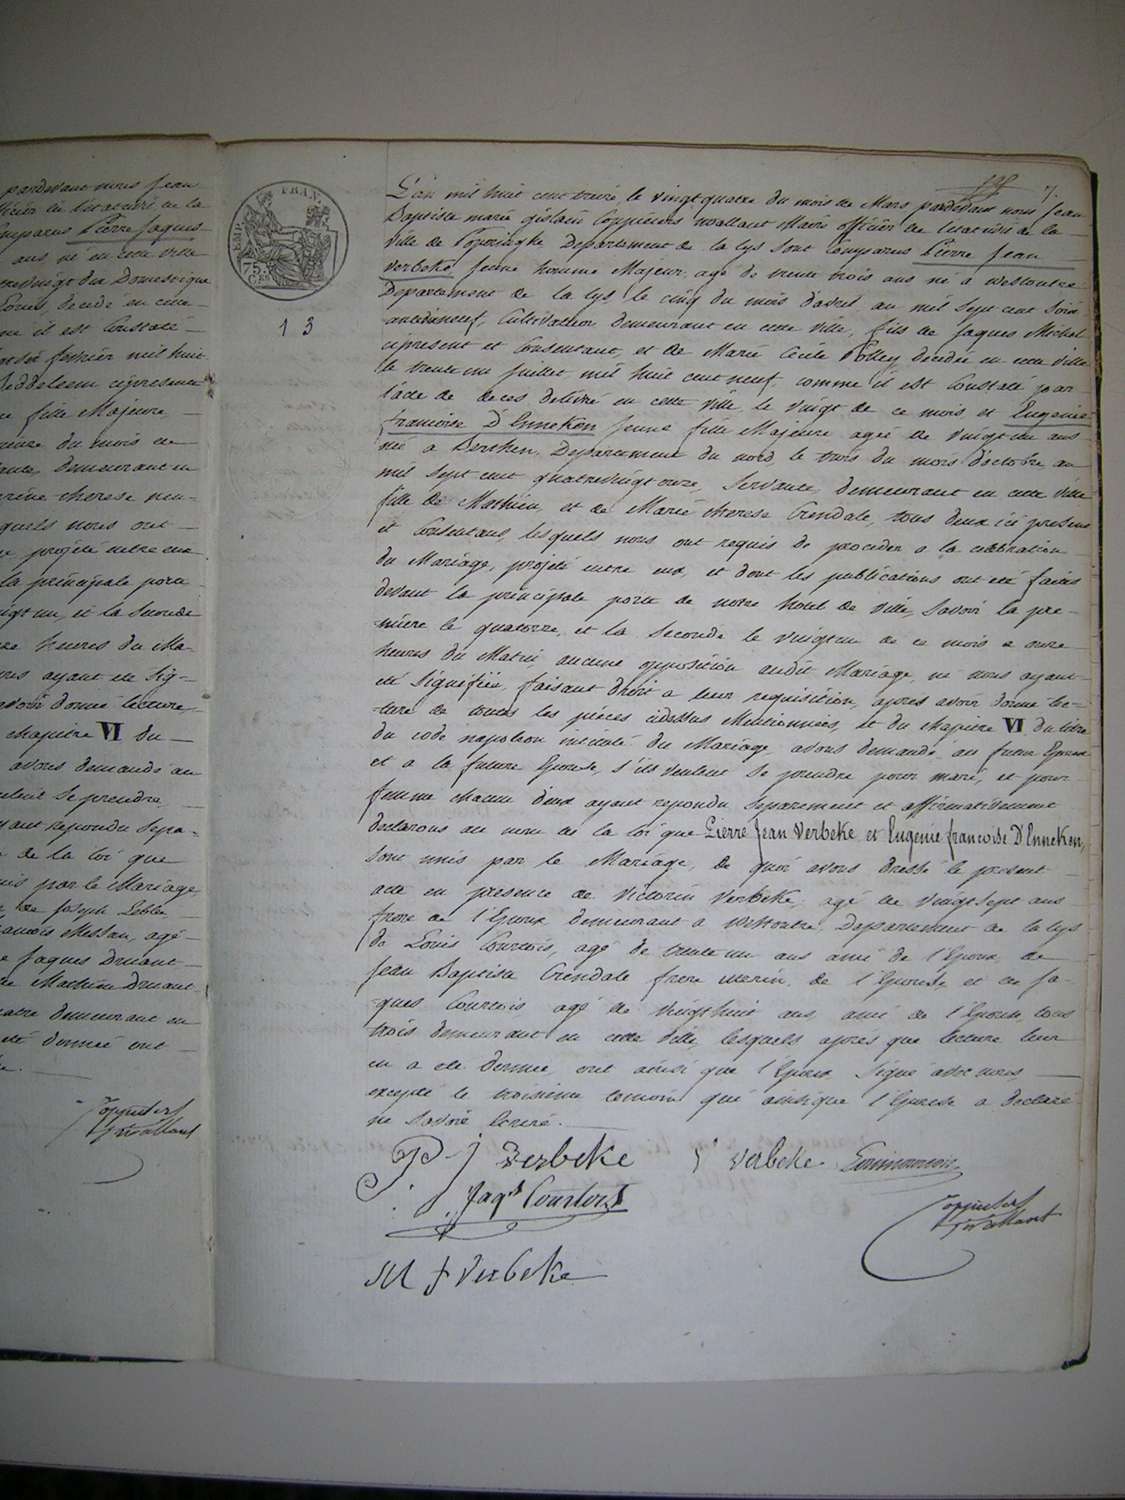 pardevant nous Jean
officier de l'etat civil de la
comparus Pierre Jaques
ans né en cette ville
Domestique
decedé en cette
il est Constaté
fevrier mil huit
cipresent
fille Majeure
du mois de
demeurant en
therese
quels nous ont
projété entre eux
la principale porte
et la seconde
heures du Ma-
ayant eté sig-
avoir donné lecture
chapitre VI du
avons demandé au
se prendre
ayant repondu sepa-
de la loi que
unis par le Mariage
de Joseph
agé
Jaques Druant
Mathieu Druant
demeurant en
eté donnée ont
Coppieters
Wallant
FRAN.
75
C
13
7.
L'an mil huit cent treize, le vingt quatre du mois de Mars pardevant nous Jean
Baptiste marie gislain Coppieters wallant Maire officier de l'etat civil de la
ville de Poperinghe Departement de la Lys sont Comparus Pierre Jean
Verbeke Jeune homme Majeur, agé de trente trois ans né a westoutre
Departement de la Lys le cinq du mois d'avril an mil sept cent soix-
antedixneuf, Cultivateur demeurant en cette ville, fils de Jaques Michel
cipresent et Consentant, et de Marie Cecile Polley decedée en cette ville
le trente un Juillet mil huit cent neuf, comme il est Constaté par
l'acte de deces delivré en cette ville le vingt de ce mois et Eugenie
francoise D'Enneken Jeune fille Majeure agée de vingt un ans
née a Berthen, Departement du nord, le trois du mois d'octobre, an
mil sept cent quatrevingt onze, Servante, demeurant en cette ville
fille de Mathieu, et de Marie therese Crendale, tous deux ici presens
et Consentans, lesquels nous ont requis de proceder a la celebration
du Mariage, projété entre eux, et dont les publications ont eté faites
devant la principale porte de notre hotel de ville, Savoir la pre-
mière le quatorze, et la Seconde le vingt un de ce mois a onze
heures du Matin aucune opposition audit Mariage, ne nous ayant
eté Signifiée, faisant droit a leur requisition, apres avoir donné lec-
ture de toutes les pièces cidessus Mentionnées, et du chapitre VI du titre
du code napoleon intitulé du Mariage, avons demandé au futur Epoux
et a la future Epouse, s'ils veulent se prendre pour mari, et pour
femme chacun d'eux ayant repondu Séparement et affirmativement
declarons au nom de la loi que Pierre Jean Verbeke et Eugenie francoise D'Enneken,
sont unis par le Mariage, de quoi avons dressé le present
acte en presence de Victorin Verbeke, agé de vingt Sept ans
frere de l'Epoux demeurant a westoutre, Departement de la Lys
de Louis Courtois, agé de trente un ans ami de l'Epoux, de
Jean Baptiste Crendale frere uterin, de l'Epouse et de Ja-
ques Courtois agé de vingt huit ans, ami de l'Epouse, tous
trois demeurant en cette ville, lesquels apres que lecture leur
en a eté donnée, ont ainsi que l'Epoux Signé avec nous,
excepté le troisieme temoin qui ainsi que l'Epouse a declaré
ne Savoir Ecrire.
P. J Verbeke V Verbeke
Jaqs Courtois Coppieters
Wallant
M J Verbeke